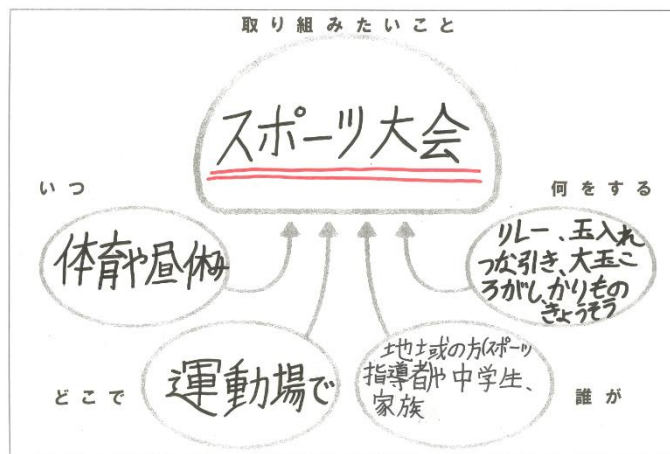 取り組みたいこと
スポーツ大会
いつ
体育や昼休み
何をする
リレー、玉入れ
つな引き、大玉こ
ろがし、かりもの
きょうそう
どこで
運動場で
地域の方(スポーツ
指導者)や中学生、
家族
誰が